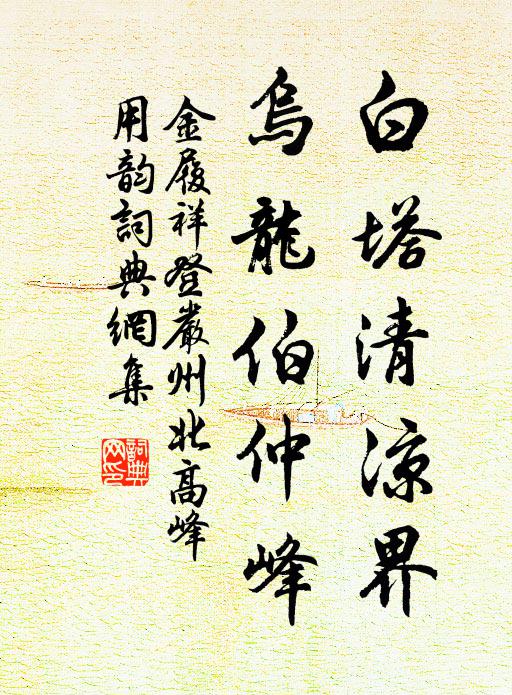 白塔清涼界
烏龍伯仲峰
金履祥登嚴州北高峰
用韵詞典網集
詞典網印